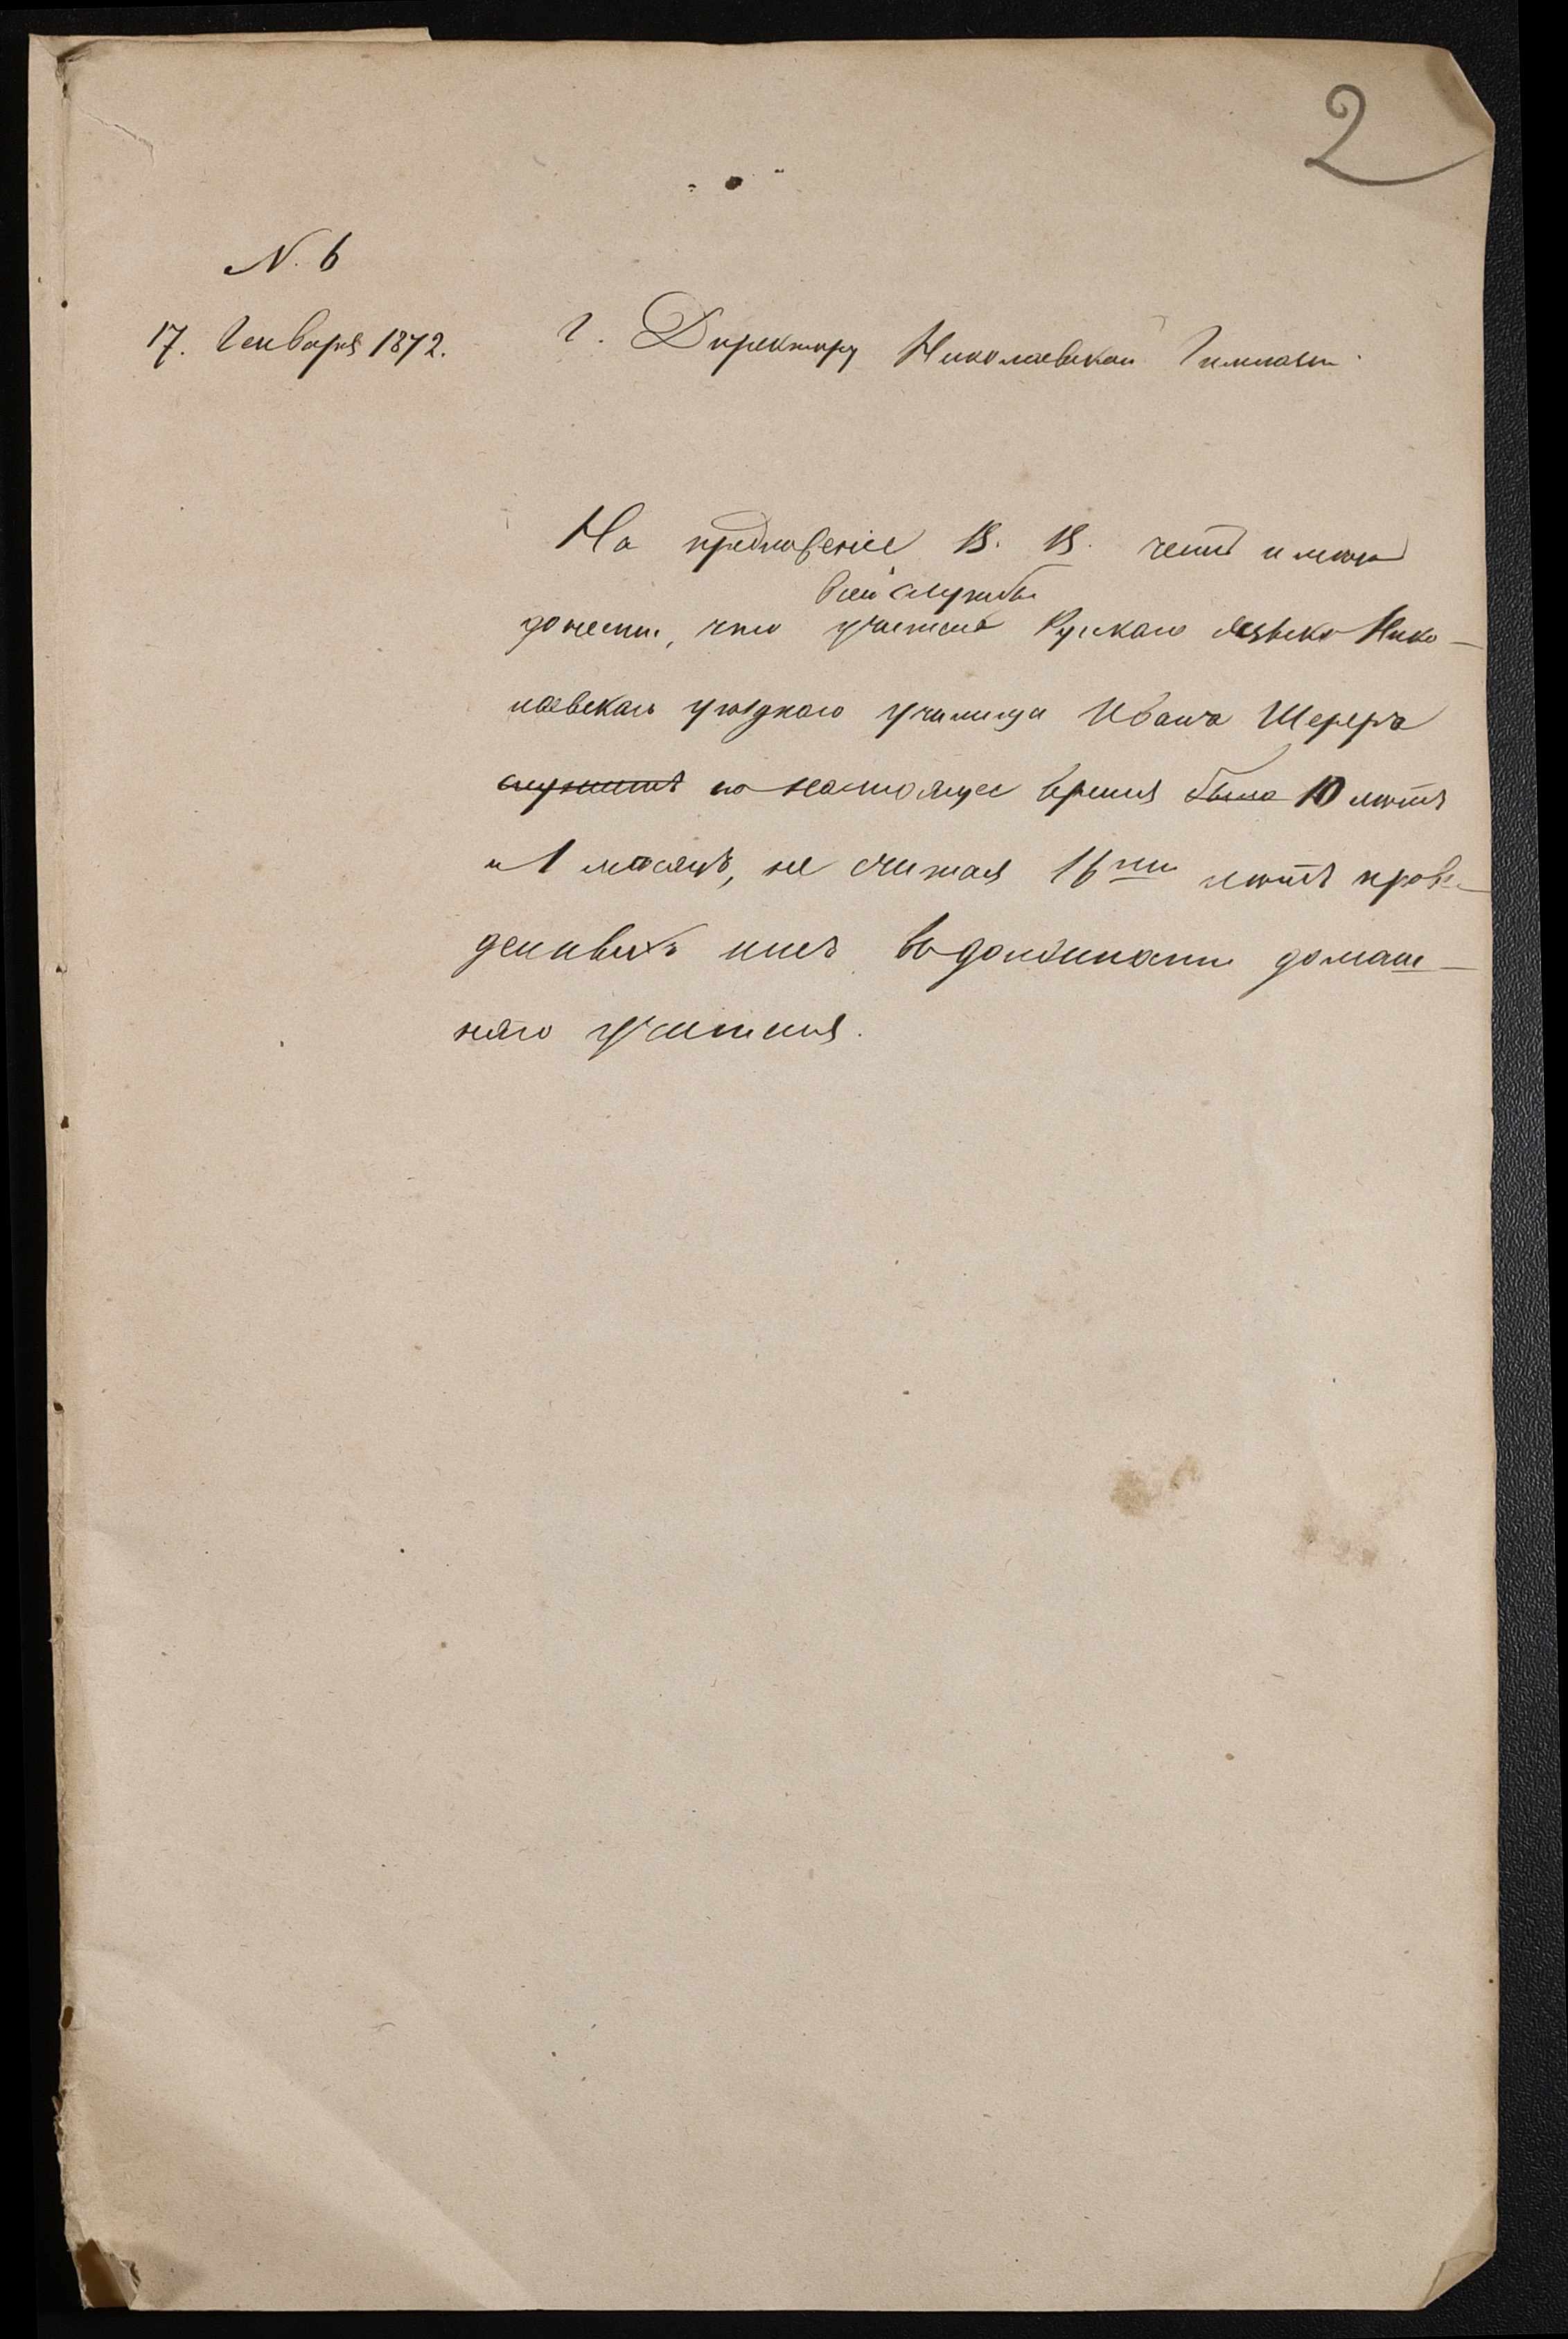 2
N. 6
17. Генваря 1872.
Г. Директору Николаевской Гимназіи.
На предложеніе В. В. честь имѣю
всей службы
донести, что учителя Рускаго языка Нико-
лаевскаго уѣзднаго училища Ивана Шерера
служитъ по настоящее время было 10 лѣтъ
и 1 мѣсяцъ, не считая 16 ти лѣтъ прове-
денныхъ имъ въ должности домаш-
няго учителя.